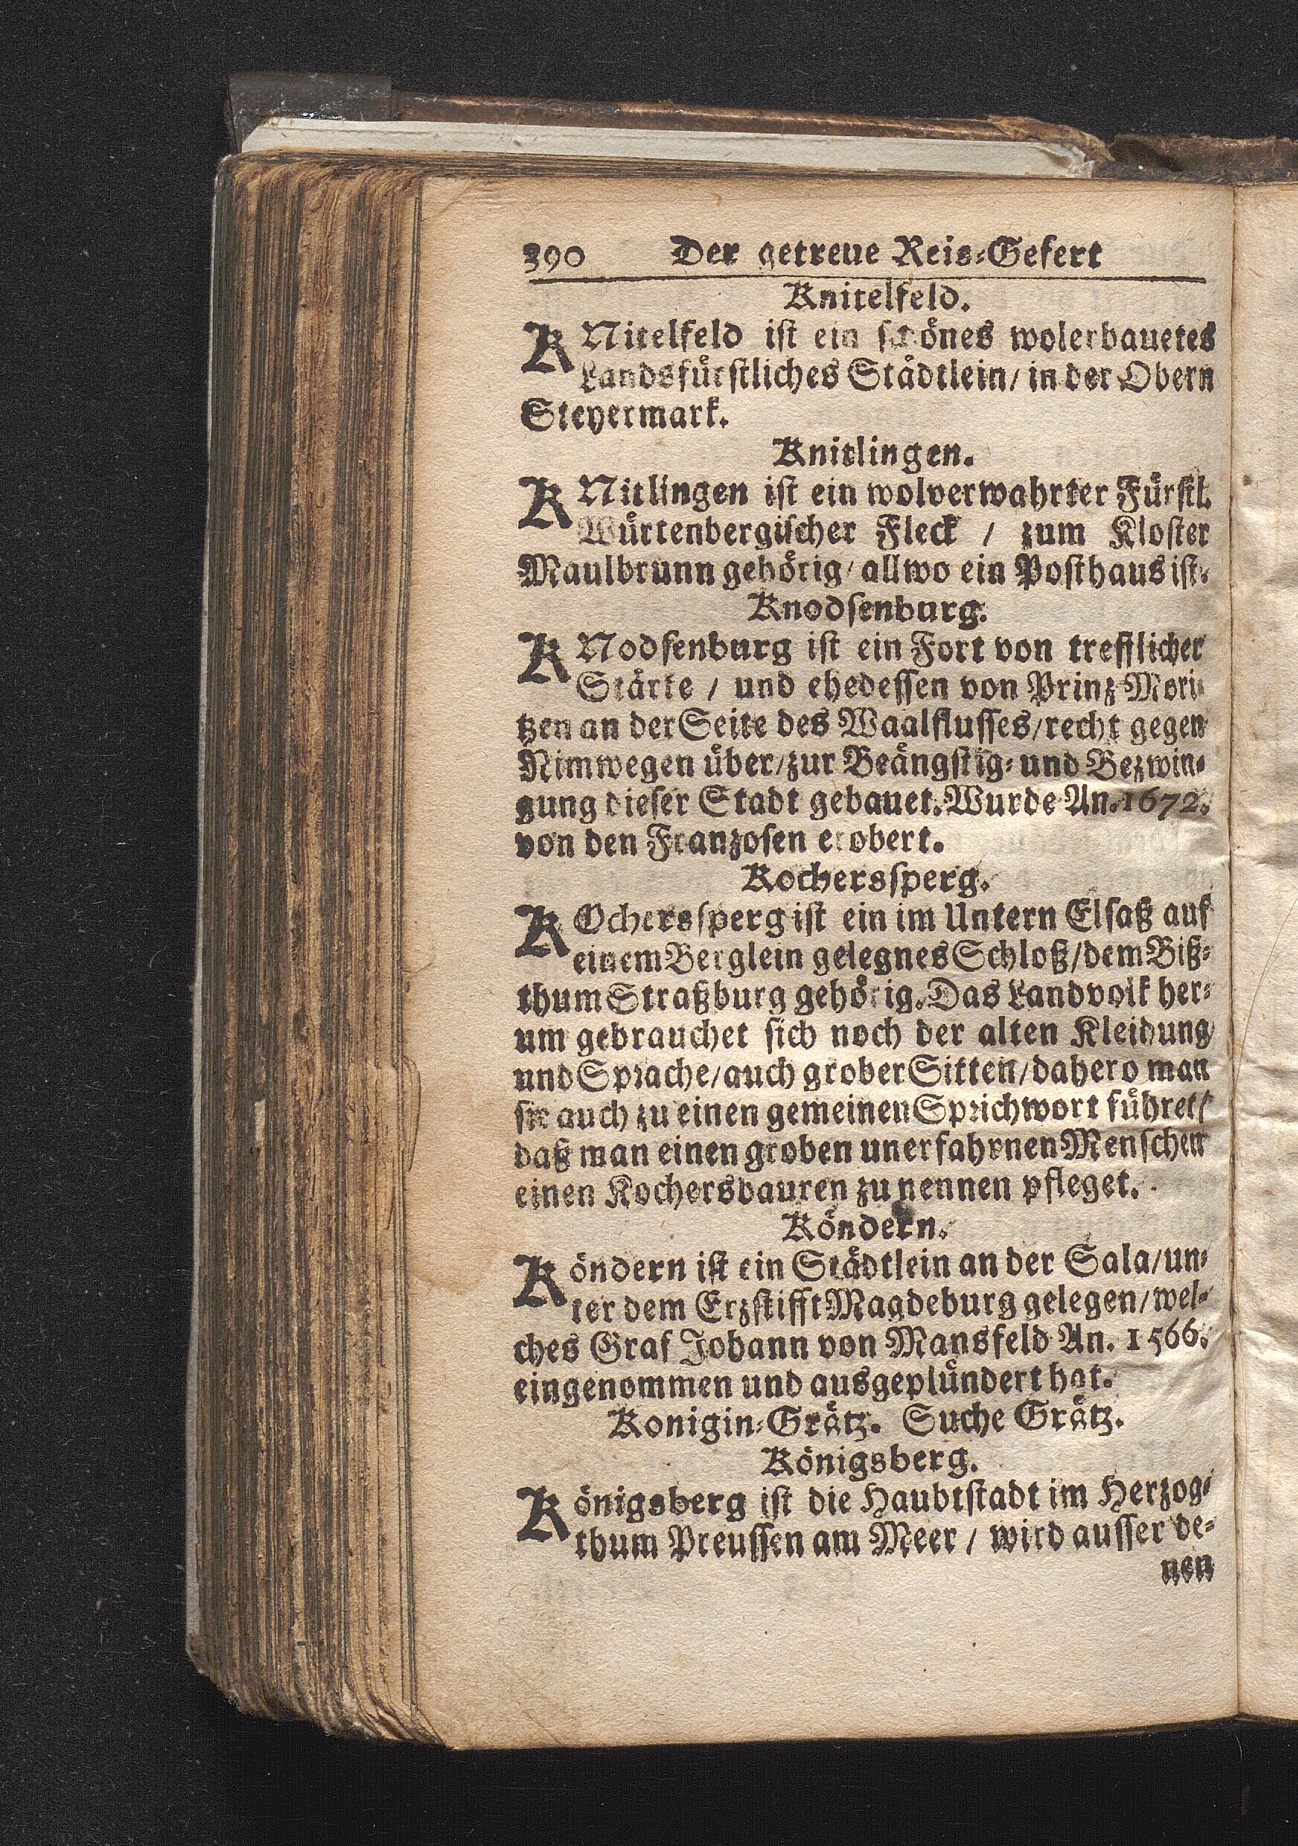 390 Der getreue Reis-Gefert
Knitelfeld.
KNitelfeld ist ein schönes wolerbauetes
Landsfürstliches Städtlein/ in der Obern
Steyermark.
Knitlingen.
KNitlingen ist ein wolverwahrter Fürstl.
Würtenbergischer Fleck / zum Kloster
Maulbrunn gehörig/ allwo ein Posthaus ist.
Knodsenburg.
KNodsenburg ist ein Fort von trefflicher
Stärke / und ehedessen von Prinz Mori-
tzen an der Seite des Waalflusses/ recht gegen
Nimwegen über/ zur Beängstig- und Bezwin-
gung dieser Stadt gebauet. Wurde An. 1672.
von den Franzosen erobert.
Kochersperg.
KOchersperg ist ein im Untern Elsaß auf
einem Berglein gelegnes Schloß/ dem Biß-
thum Straßburg gehörig. Das Landvolk her-
um gebrauchet sich noch der alten Kleidung
und Sprache/ auch grober Sitten/ dahero man
sie auch zu einen gemeinen Sprichwort führet/
daß man einen groben unerfahrnen Menschen
einen Kochersbauren zu nennen pfleget.
Köndern.
Köndern ist ein Städtlein an der Sala/ un-
ter dem Erzstifft Magdeburg gelegen/ wel-
ches Graf Johann von Mansfeld An. 1566.
eingenommen und ausgeplündert hat.
Konigin-Grätz. Suche Grätz.
Königsberg.
Königsberg ist die Haubtstadt im Herzog-
thum Preussen am Meer / wird ausser de-
nen